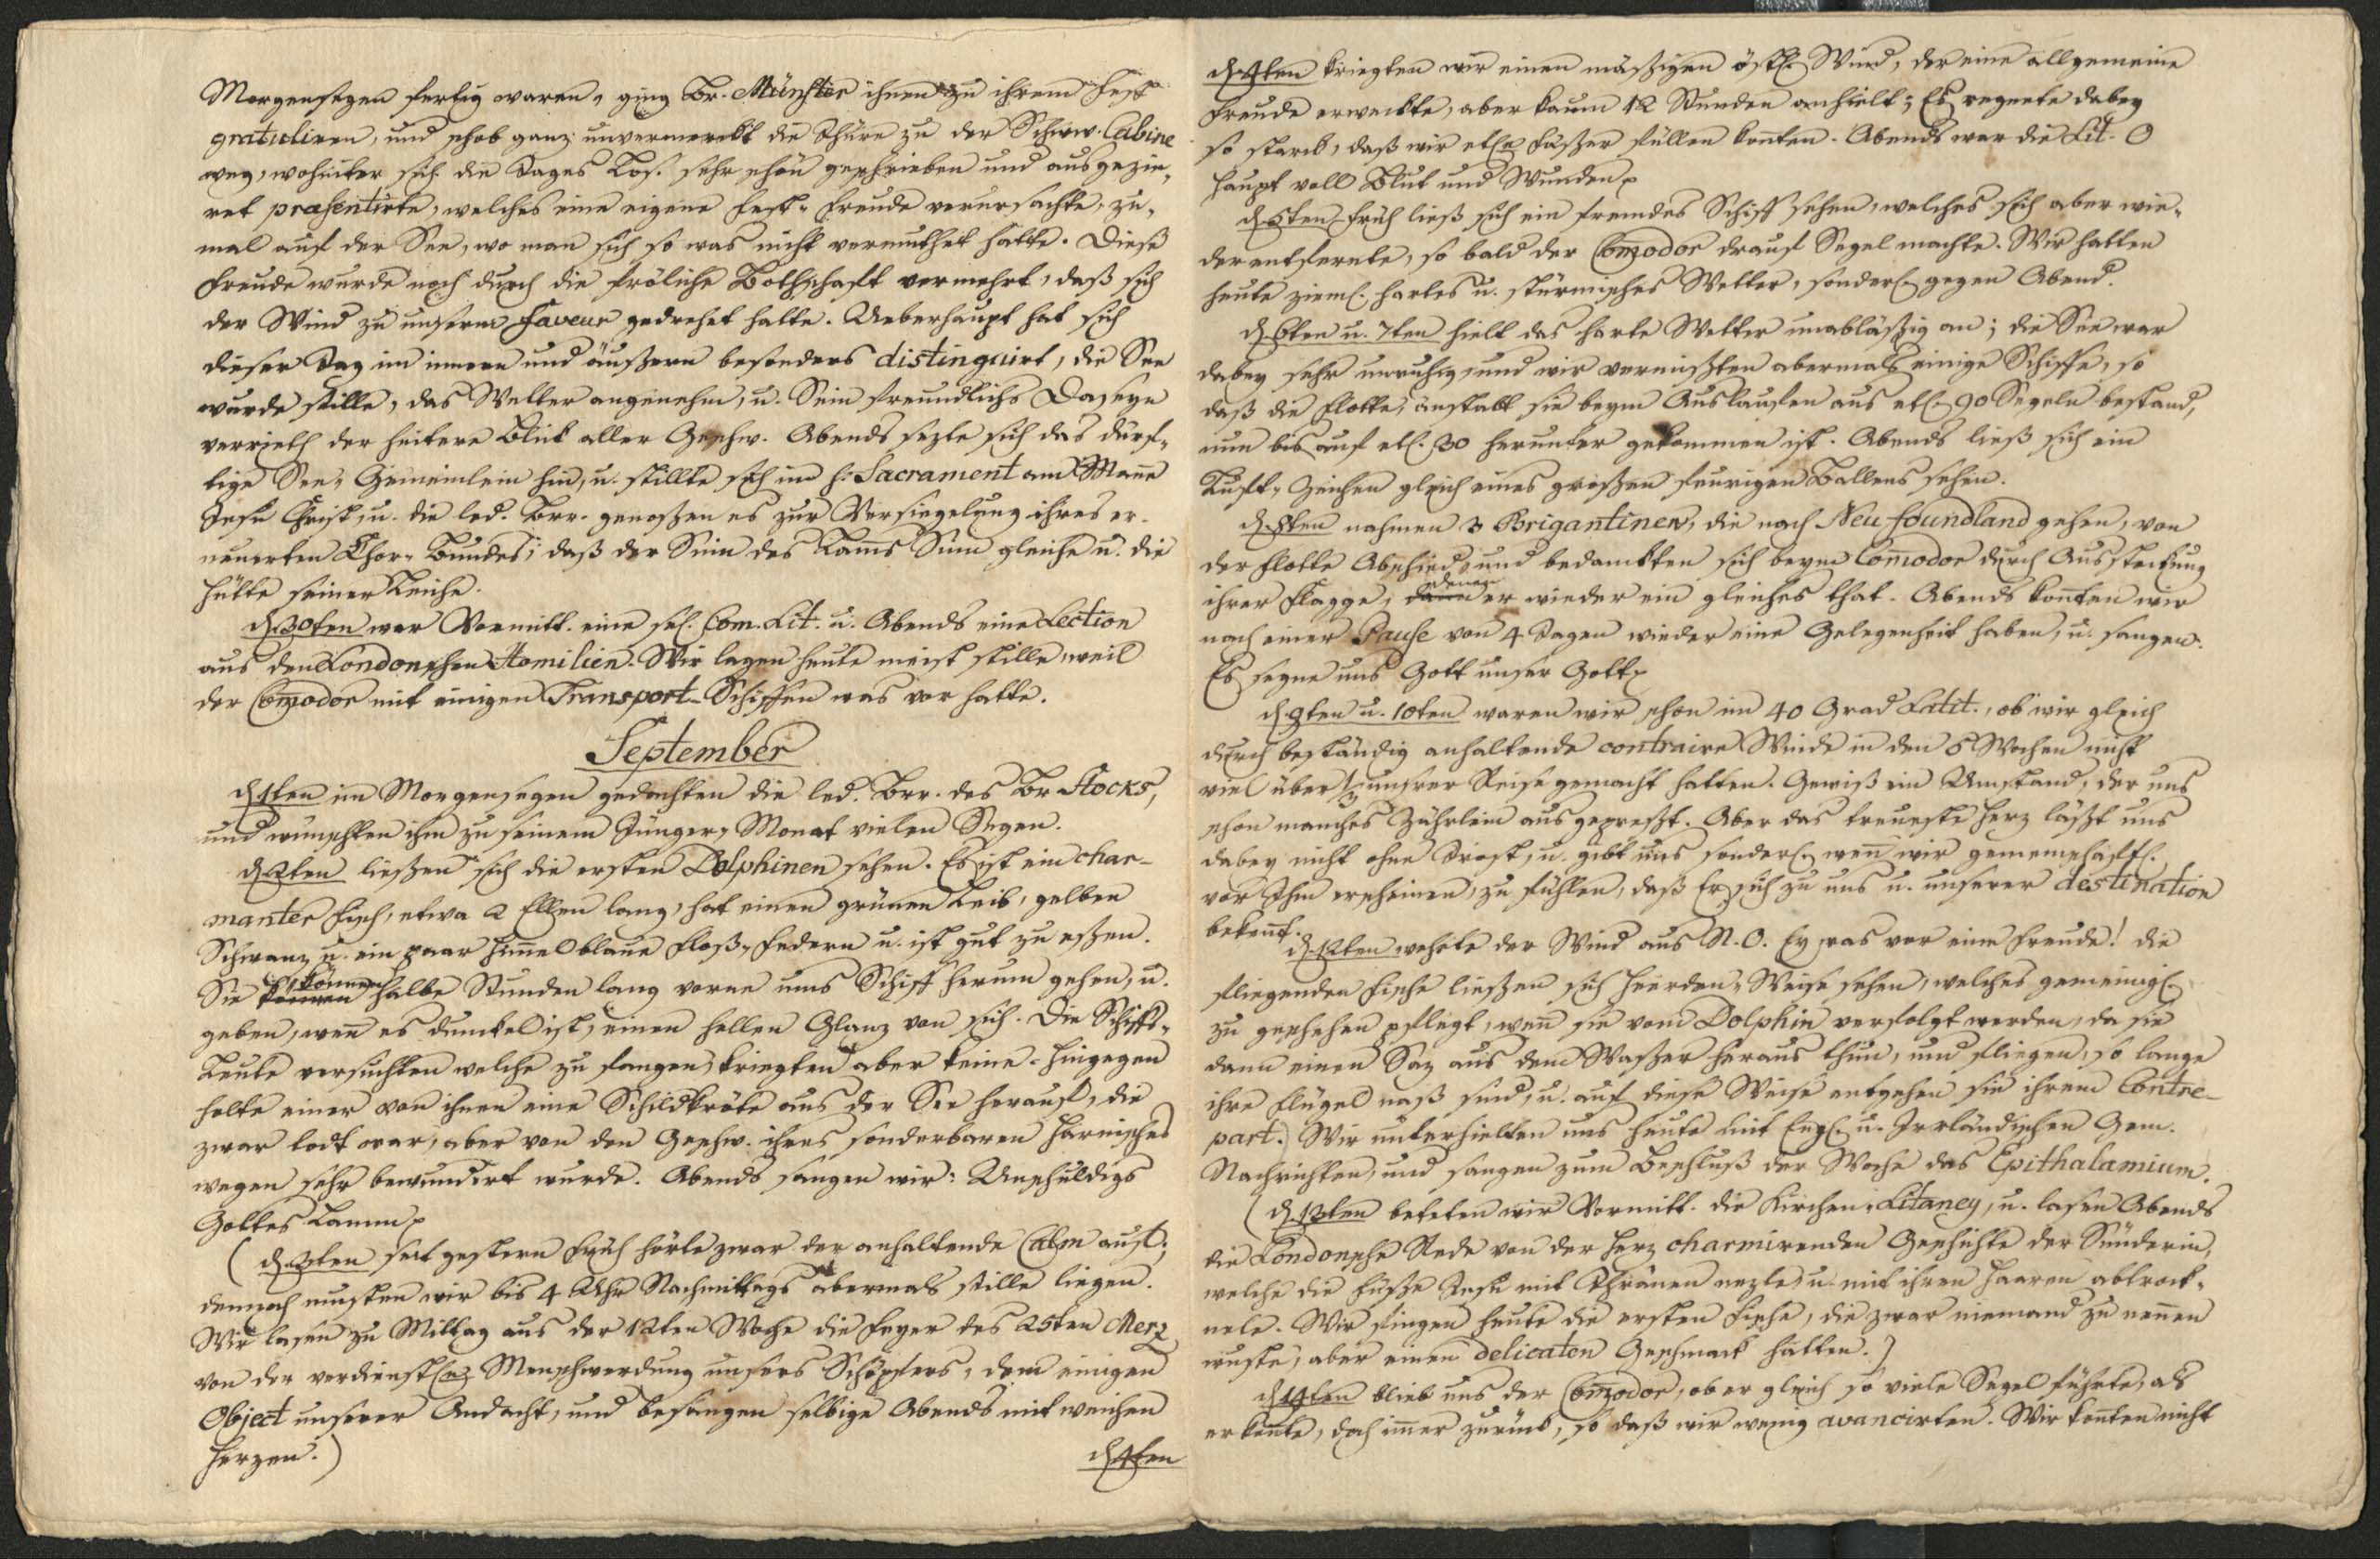 Morgensegen fertig waren, ging Br. Münster ihnen zu ihrem Fest
gratuliren, und schob ganz unvermerckt die Thüre zu der Schww. Cabine
weg, wohinter sich die Tages Los. sehr schön geschrieben und ausgezie-
ret præsentirte, welches eine eigene Fest-Freude verursachte, zu-
mal auf der See, wo man sich so was nicht vermuthet hätte. Diese
Freude wurde noch durch die fröliche Bothschaft vermehrt, daß sich
der Wind zu unserm Faveur gedrehet hatte. Ueberhaupt hat sich
dieser Tag im innern und äußern besonders distinguirt, die See
wurde stille, das Wetter angenehm, u. Sein freundlichs Daseyn
verrieth der heitere Blick aller Geschw. Abends sezte sich das dürf-
tige See-Gemeinlein hin, u. stillte sich im h. Sacrament am Mañe
Jesu Christ, u. die led. Brr. genoßen es zur Versiegelung ihres er-
neuerten Chor-Bundes; daß der Sinn des Lams Sinn gleiche u. die
Hütte seiner Leiche.
d. 30ten war Vormitt. eine sel. Com. Lit. u. Abends eine Lection
aus den Londonschen Homilien. Wir lagen heute meist stille, weil
der Comodor mit einigen Transport-Schiffen was vor hatte.
September
d. 1ten im Morgensegen gedachten die led. Brr. des Br. Stocks,
und wünschten ihm zu seinem Jünger-Monat vielen Segen.
d. 2ten ließen sich die ersten Dolphinen sehen. Es ist ein char-
manter Fisch, etwa 2 Ellen lang, hat einen grünen Leib, gelben
Schwanz u. ein paar him̃elblaue Floß-Federn u. ist gut zu eßen.
Sie können halbe Stunden lang vorne ums Schiff herum gehen, u.
geben, weñ es dunckel ist, einen hellen Glanz von sich. Die Schiffs-
Leute versuchten welche zu fangen, kriegten aber keine. Hingegen
holte einer von ihnen eine Schildkröte aus der See herauf, die
zwar todt war, aber von den Geschw. ihres sonderbaren Harnisches
wegen sehr bewundert wurde. Abends sangen wir: Unschuldigs
Gottes Lamm p
(d. 3ten seit gestern Früh hörte zwar der anhaltende Calm auf,
dennoch musten wir bis 4 Uhr Nachmittags abermals stille liegen.
Wir lasen zu Mittag aus der 12ten Woche die Feyer des 25ten Merz
von der verdienstl. Menschwerdung unsers Schöpfers, dem einigen
Object unserer Andacht, und besangen selbige Abends mit weichen
Herzen.)
d. 4ten
d. 4ten kriegten wir einen mäßigen östl. Wind, der eine allgemeine
Freude erweckte, aber kaum 12 Stunden anhielt; Es regnete dabey
so starck, daß wir etl. Fäßer füllen konten. Abends war die Lit. O
Haupt voll Blut und Wunden p
d. 5ten früh ließ sich ein fremdes Schiff sehen, welches sich aber wie-
der entfernte, so bald der Comodor drauf Segel machte. Wir hatten
heute zieml. hartes u. stürmisches Wetter, sonderl. gegen Abend.
d. 6ten u. 7ten hielt das harte Wetter unabläßig an; die See war
dabey sehr unruhig, und wir vermißten abermals einige Schiffe, so
daß die Flotte, anstatt sie beym Auslaufen aus etl. 90 Segeln bestand,
nun bis auf etl. 30 herunter gekommen ist. Abends ließ sich ein
Luft-Zeichen gleich eines großen feurigen Ballens sehen.
d. 8ten nahmen 3 Brigantinen, die nach Neu foundland gehen, von
der Flotte Abschied, und bedanckten sich beym Comodor durch Aussteckung
ihrer Flagge, denen er wieder ein gleiches that. Abends konten wir
nach einer Pause von 4 Tagen wieder eine Gelegenheit haben, u. sangen:
Es segne uns Gott unser Gott p
d. 9ten u. 10ten waren wir schon im 40 Grad Latit., ob wir gleich
durch beständig anhaltende contraire Winde in den 6 Wochen nicht
viel über 1/3 unsrer Reise gemacht hatten. Gewiß ein Umstand, der uns
schon manches Zährlein ausgepreßt. Aber das treueste Herz läßt uns
dabey nicht ohne Trost, u. gibt uns sonderl. weñ wir gemeinschaftl.
vor Ihm erscheinen, zu fühlen, daß Er sich zu uns u. unserer destination
bekeñt.
d. 12ten wehete der Wind aus N. O. Ey was vor eine Freude! die
fliegenden Fische ließen sich Heerden-Weise sehen, welches gemeinigl.
zu geschehen pflegt, weñ sie vom Dolphin verfolgt werden, da sie
dann einen Saz aus dem Waßer heraus thun, und fliegen, so lange
ihre Flügel naß sind, u. auf diese Weise entgehen sie ihrem Contre-
part. Wir unterhielten uns heute mit Engl. u. Irrländischen Gem.
Nachrichten, und sangen zum Beschluß der Woche das Epithalamium.
(d. 13ten beteten wir Vormitt. die Kirchen-Litaney, u. lasen Abends
die Londonsche Rede von der Herz charmirenden Geschichte der Sünderin,
welche die Füße Jesu mit Thränen nezte, u. mit ihren Haaren abtrock-
nete. Wir fingen heute die ersten Fische, die zwar niemand zu neñen
wuste, aber einen delicaten Geschmack hatten.)
d. 14ten blieb uns der Comodor, ob er gleich so viele Segel führte, als
er konte, doch im̃er zurück, so daß wir wenig avancirten. Wir konten nicht